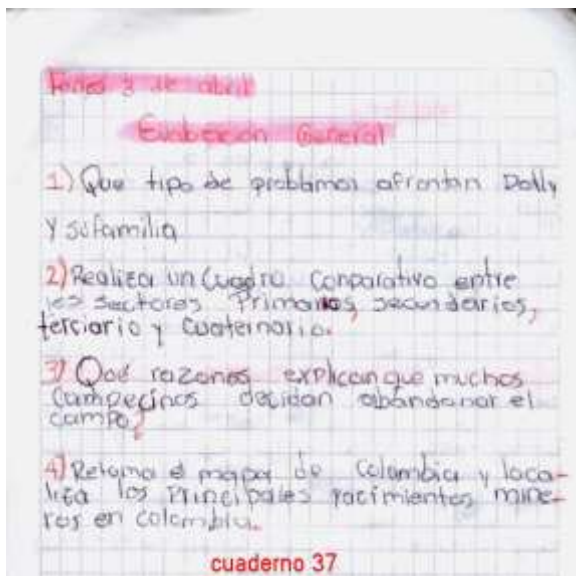 3 de abril
Evaluación General
1) Que tipo de problemas afrontan Dolly
y su familia
2) Realiza un Cuadro Conparativo entre
los sectores Primarios, secundarios,
terciario y Cuaternario.
3) Qué razones explican que muchos
Campecinos decidan abandonar el
campo?
4) Retoma el mapa de Colombia y loca-
liza los Principales yacimientos mine-
ros en colombia.
cuaderno 37